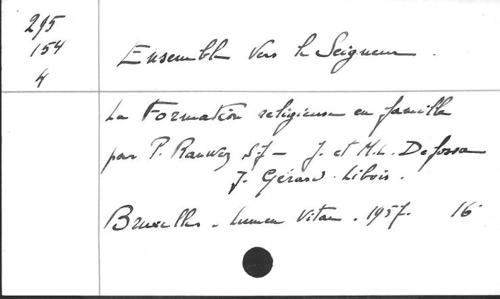 295
154
4
Ensemble vers le Seigneur.
La Formation religieuse en famille
par P. Ranwez SJ – J. et M.L. Defossa
J. Gérard-Libois.
Bruxelles. Lumen Vitae. 1957. 16